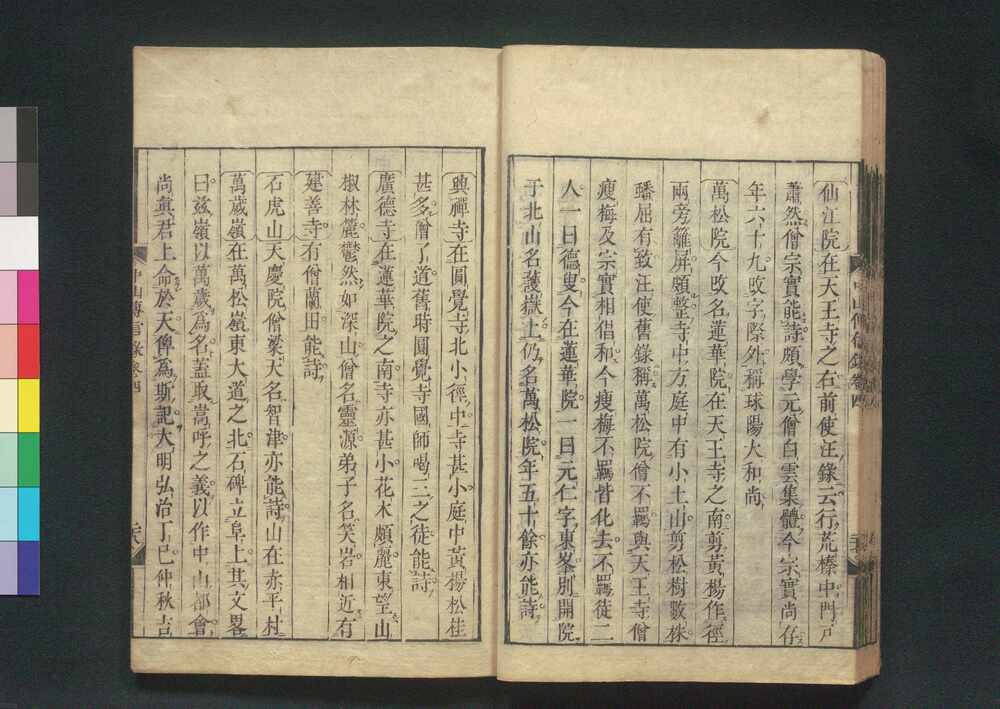 仙江院在天王寺之右前使汪錄云行荒榛中門戸
蕭然僧宗實能詩頗學元僧白雲集體今宗實尚存
年六十九改字際外稱球陽大和尚
萬松院今改名蓮華院在天王寺之南剪黃楊作徑
兩旁籬屏頗整寺中方庭中有小土山剪松樹數株
蟠屈有致汪使舊錄稱萬松院僧不羈與天王寺僧
瘦梅及宗實相倡和今瘦梅不羈皆化去不羈徒二
人一曰德叟今在蓮華院一曰元仁字東峯別開院
于北山名護嶽上仍名萬松院年五十餘亦能詩
中山傳信錄卷四
興禪寺在圓覺寺北小徑中寺甚小庭中黃楊松桂
甚多僧了道舊時圓覺寺國師喝三之徒能詩
廣德寺在蓮華院之南寺亦甚小花木頗麗東望山
椒林麓鬱然如深山僧名靈源弟子名笑岩相近有
建善寺有僧蘭田能詩
石虎山天慶院僧梁天名智津亦能詩山在赤平村
萬歲嶺在萬松嶺東大道之北石碑立阜上其文畧
曰茲嶺以萬歲爲名蓋取嵩呼之義以作中山都會
尚眞君上命於天俾爲斯記大明弘治丁巳仲秋吉
中山傳信錄卷四